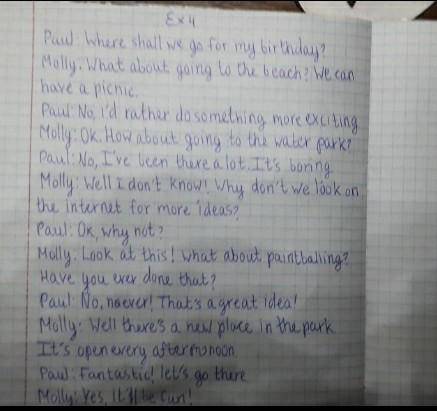 Ex 4
Paul: Where shall we go for my birthday?
Molly: What about going to the beach? We can
have a picnic.
Paul: No, I'd rather do something more exciting
Molly: Ok. How about going to the water park?
Paul: No, I've been there a lot. It's boring
Molly: Well I don't know! Why don't we look on
the internet for more ideas?
Paul: Ok, why not?
Molly: Look at this! What about paintballing?
Have you ever done that?
Paul: No, never! That's a great idea!
Molly: Well there's a new place in the park
It's open every afternoon
Paul: Fantastic! let's go there
Molly: Yes, It'll be fun!